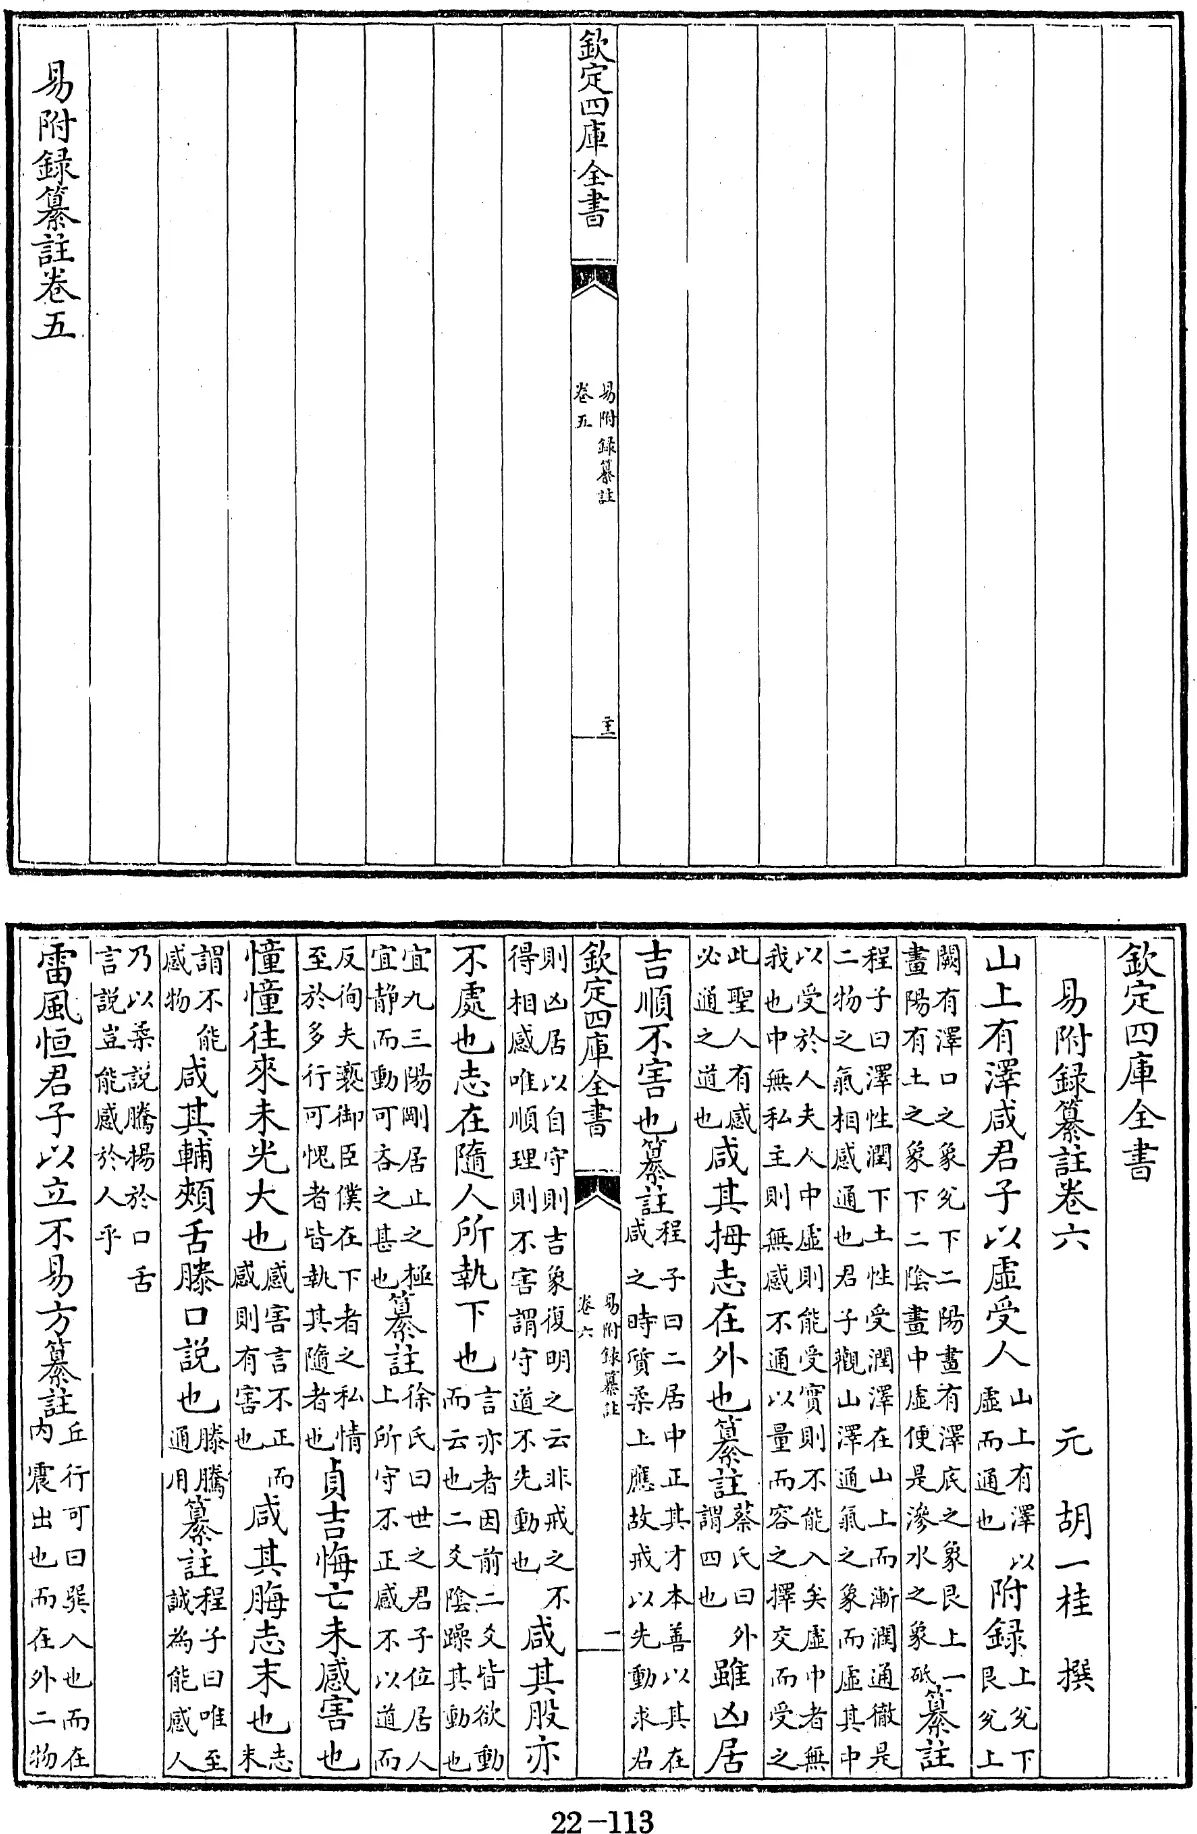 欽定四庫全書
易附録纂註
卷五
易附録纂註卷五
欽定四庫全書
易附録纂註卷六
元 胡一桂 撰
山上有澤咸君子以虛受人山上有澤以虛而通也附録上兊下艮兊上
闕有澤口之象兊下二陽畫有澤底之象艮上一畫陽有土之象下二陰畫中虛便是滲水之象砥纂註
程子曰澤性潤下土性受潤澤在山上而漸潤通徹是二物之氣相感通也君子觀山澤通氣之象而虛其中
以受於人夫人中虛則能受實則不能入矣虛中者無我也中無私主則無感不通以量而容之擇交而受之
此聖人有感必通之道也咸其拇志在外也纂註蔡氏曰外謂四也雖凶居
吉順不害也纂註程子曰二居中正其才本善以其在咸之時質柔上應故戒以先動求君
欽定四庫全書
易附録纂註
卷六
二
則凶居以自守則吉象復明之云非戒之不得相感唯順理則不害謂守道不先動也咸其股亦
不處也志在隨人所執下也言亦者因前二爻皆欲動而云也二爻陰躁其動也
宜九三陽剛居止之極宜静而動可吝之甚也纂註徐氏曰世之君子位居人上所守不正感不以道而
反徇夫褻御臣僕在下者之私情至於多行可愧者皆執其隨者也貞吉悔亡未感害也
憧憧往來未光大也感害言不正而感則有害也咸其脢志末也志末
謂不能感物咸其輔頰舌滕口説也滕騰通用纂註程子曰唯至誠為能感人
乃以柔説騰揚於口舌言説豈能感於人乎
雷風恒君子以立不易方纂註丘行可曰巽入也而在内震出也而在外二物
22-113